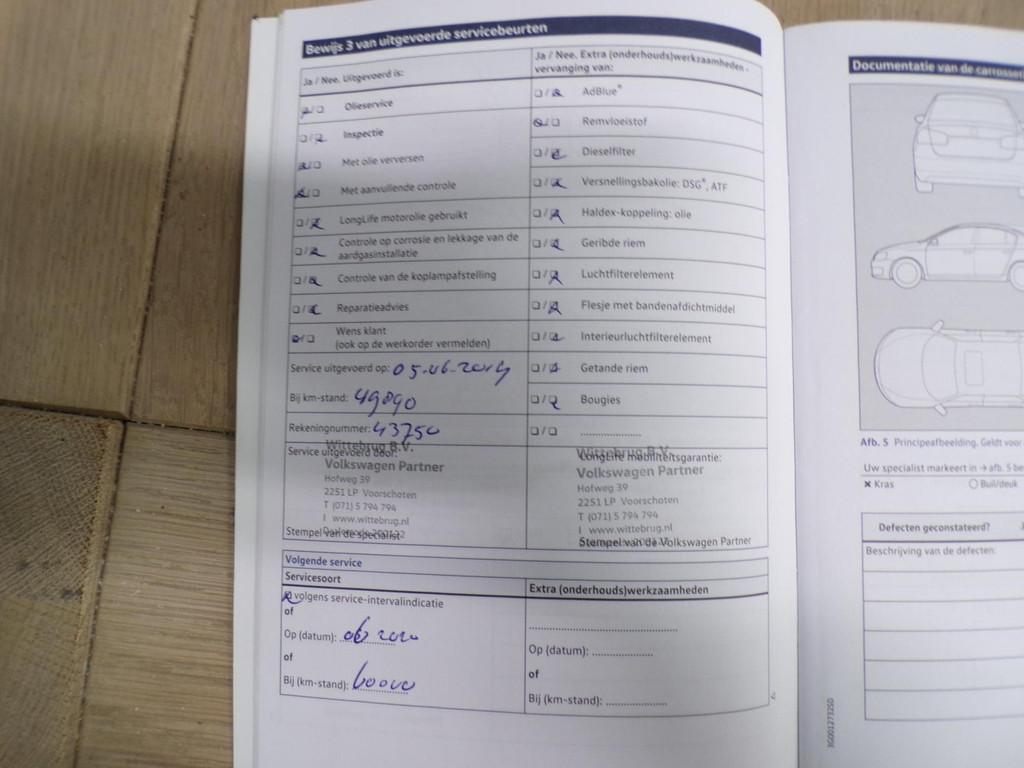 Bewijs 3 van uitgevoerde servicebeurten
Ja / Nee. Uitgevoerd is:
Olieservice
Inspectie
Met olie verversen
Met aanvullende controle
LongLife motorolie gebruikt
Controle op corrosie en lekkage van de
aardgasinstallatie
Controle van de koplampafstelling
Reparatieadvies
Wens klant
(ook op de werkorder vermelden)
Service uitgevoerd op: 05-06-2019
Bij km-stand: 49890
Rekeningnummer: 43750
Service uitgevoerd door:
Wittebrug B.V.
Volkswagen Partner
Hofweg 39
2251 LP Voorschoten
T (071) 5 794 794
I www.wittebrug.nl
Stempel van de specialist
Ja / Nee. Extra (onderhouds)werkzaamheden -
vervanging van:
AdBlue®
Remvloeistof
Dieselfilter
Versnellingsbakolie: DSG®, ATF
Haldex-koppeling: olie
Geribde riem
Luchtfilterelement
Flesje met bandenafdichtmiddel
Interieurluchtfilterelement
Getande riem
Bougies
....................
LongLife mobiliteitsgarantie:
Wittebrug B.V.
Volkswagen Partner
Hofweg 39
2251 LP Voorschoten
T (071) 5 794 794
I www.wittebrug.nl
Stempel van de Volkswagen Partner
Volgende service
Servicesoort
volgens service-intervalindicatie
of
Op (datum): 06 2020
of
Bij (km-stand): 60000
Extra (onderhouds)werkzaamheden
Op (datum): ....................
of
Bij (km-stand): ....................
Documentatie van de carrosser
Afb. 5 Principeafbeelding. Geldt voor
Uw specialist markeert in → afb. 5 be
✖ Kras
○ Buil/deuk
Defecten geconstateerd? J
Beschrijving van de defecten:
3G0012732SD